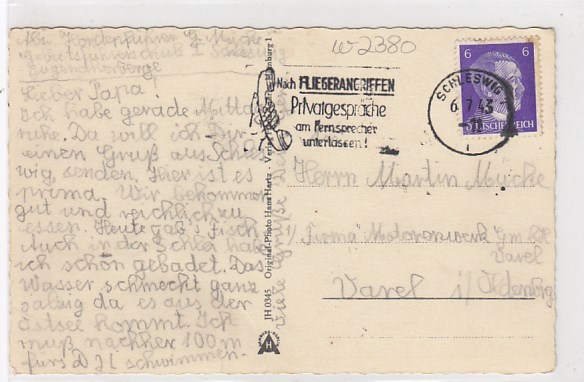 Abs. Hordenführer G. Mücke
Gebietsführerschule I Schleswig
Jugendherberge
Lieber Papa!
Ich habe gerade Mittags
ruhe. Da will ich Dir
einen Gruß aus Schles
wig senden. Hier ist es
prima. Wir bekommen
gut und reichlich zu
essen. Heute gab's Fisch.
Auch in der Schlei habe
ich schon gebadet. Das
Wasser schmeckt ganz
salzig da es aus der
Ostsee kommt. Ich
muß nachher 100 m
fürs DJL schwimmen.
Viele Grüße
JH 0345 Original-Photo Hans Hartz
Hamburg 1
w 2380
Nach FLIEGERANGRIFFEN
Privatgespräche
am Fernsprecher
unterlassen!
SCHLESWIG
6.7.43
6 6
DEUTSCHES REICH
Herrn Martin Mücke
Firma Motorenwerk GmbH
Varel
Varel i/Oldenburg
H